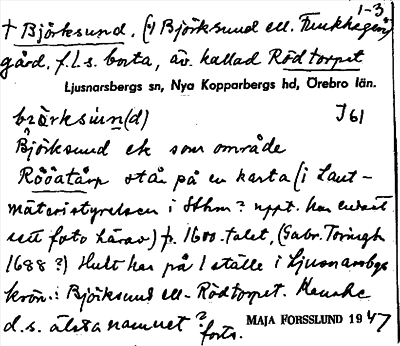 1-3
† Björksund, (4 Björksund ell. Finnkhagen)
gård, f.l.s. borta, äv. kallad Rödtorpet
Ljusnarsbergs sn, Nya Kopparbergs hd, Örebro län.
J 61
Björksund ek som område
står på en karta (i Lant-
mäteristyrelsen i Sthm? uppt. har endast
sett foto härav) fr. 1600-talet, (Gabr. Toringh
1688?) Hult har på 1 ställe i Ljusnarsbgs
krön.: Björksund ell. Rödtorpet. Kanske
d.s. älsta namnet? forts.
MAJA FORSSLUND 1947